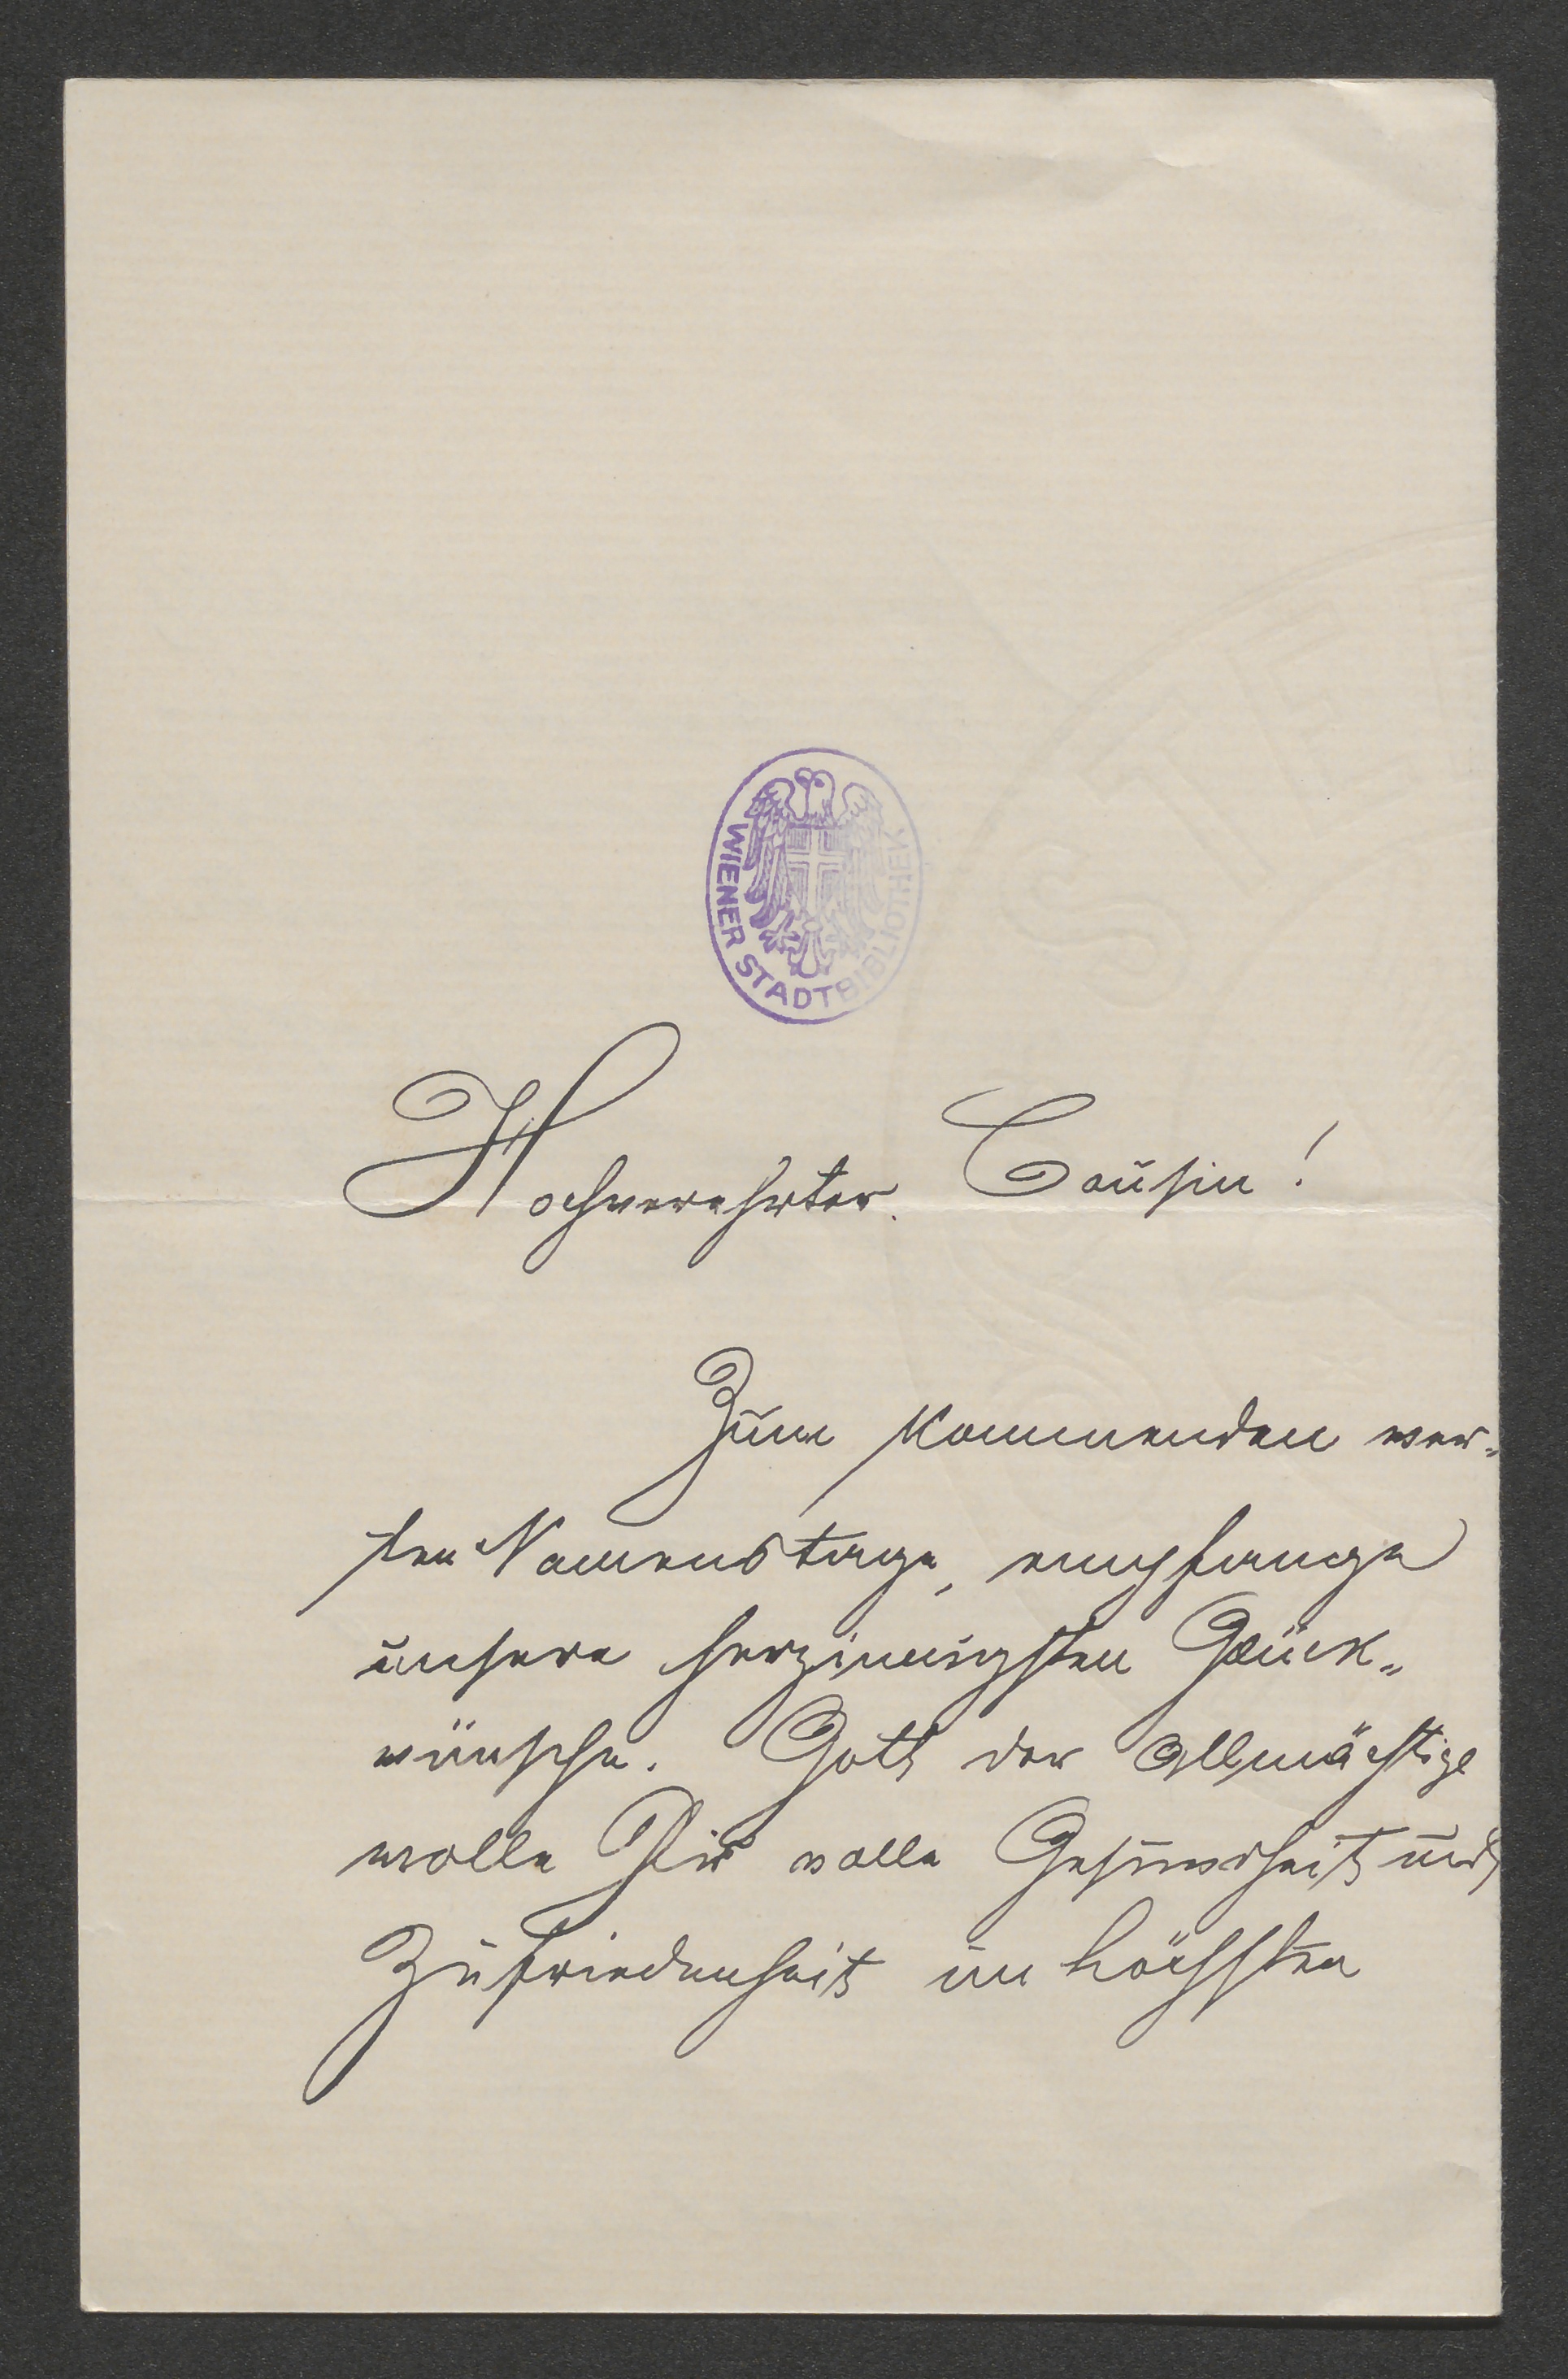 WIENER STADTBIBLIOTHEK
Hochverehrter Cousin!
Zum kommenden wer=
ten Namenstage, empfange
unsere herzinnigsten Glück=
wünsche. Gott der Allmächtige
wolle Dir volle Gesundheit und
Zufriedenheit im höchsten